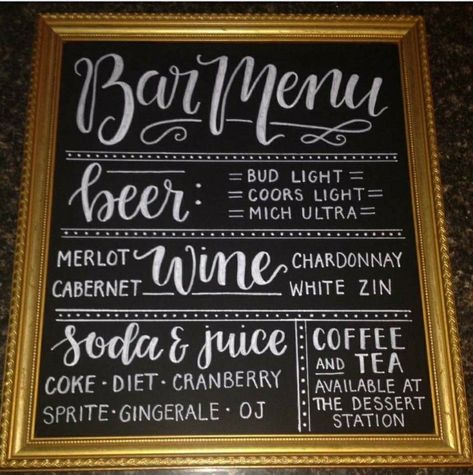 Bar Menu
beer:
= BUD LIGHT =
= COORS LIGHT =
= MICH ULTRA =
MERLOT
CABERNET
wine
CHARDONNAY
WHITE ZIN
soda & juice
COKE · DIET · CRANBERRY
SPRITE · GINGERALE · OJ
COFFEE
AND TEA
AVAILABLE AT
THE DESSERT
STATION